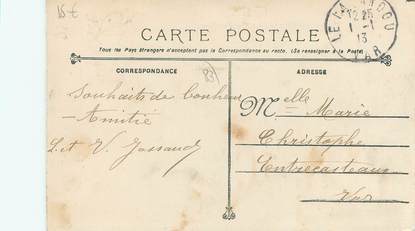 15 €
CARTE POSTALE
Tous les Pays étrangers n'acceptent pas la Correspondance au recto. (Se renseigner à la Poste).
LE LAVANDOU
12 25
1 - 1
13
VAR
CORRESPONDANCE
83
ADRESSE
Souhaits de bonheur
Amitié
L. et V. Jassaud
Melle Marie
Christophe
Entrecasteaux
Var